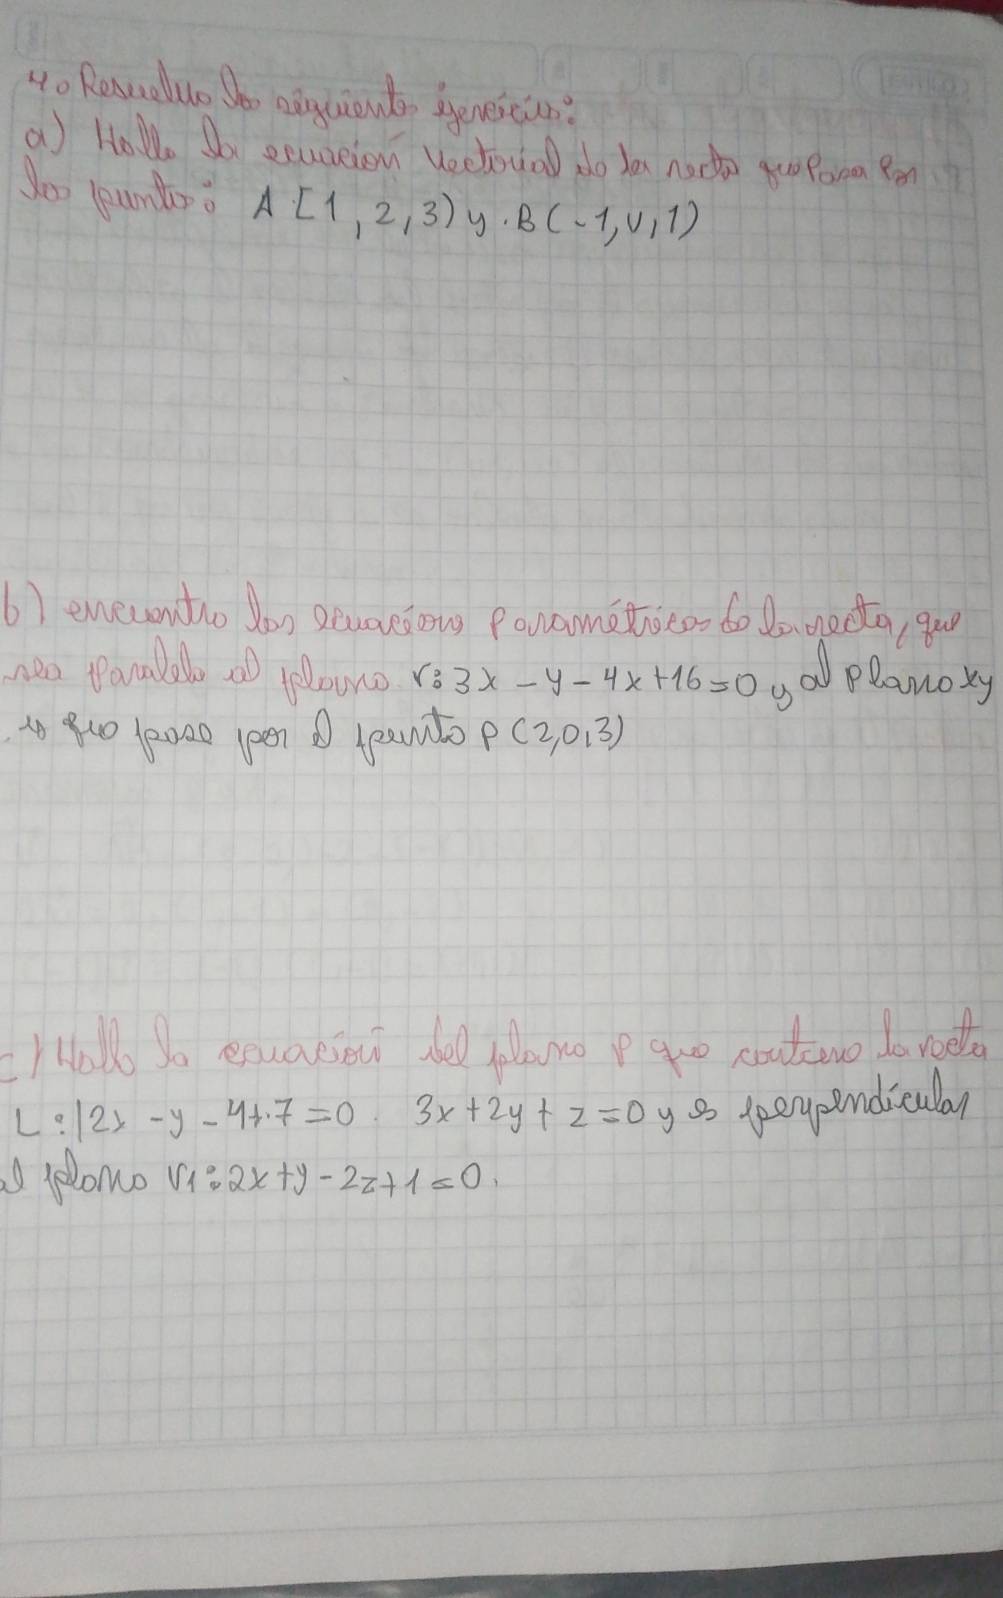 4. Resuelve los siguientes ejercicios:
a) Halle la ecuación vectorial de la recta que Pasa Por
los puntos: A [1, 2, 3) y B (-1, 0, 1)
b) encuentre las ecuaciones Paramétricas de la recta, que
sea Paralela al plano r: 3x - y - 4x + 16 = 0 y al Plano xy
y que pase por el punto P (2, 0, 3)
c) Halle la ecuación del plano P que contiene la recta
L: 12x - y - 4 + 7 = 0 3x + 2y + z = 0 y es perpendicular
al plano r1: 2x + y - 2z + 1 = 0.